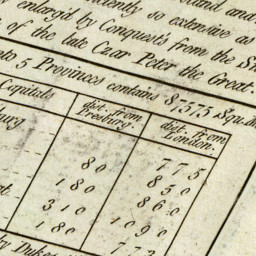 so extensive as
enlarg'd by Conquests from the
of the late Czar Peter the Great.
5 Provinces contains 87575 Squ.
Capitals dist. from Presburg. dist. from London.
burg
80 775
180 850
310 860
180 1090
773
Dukes